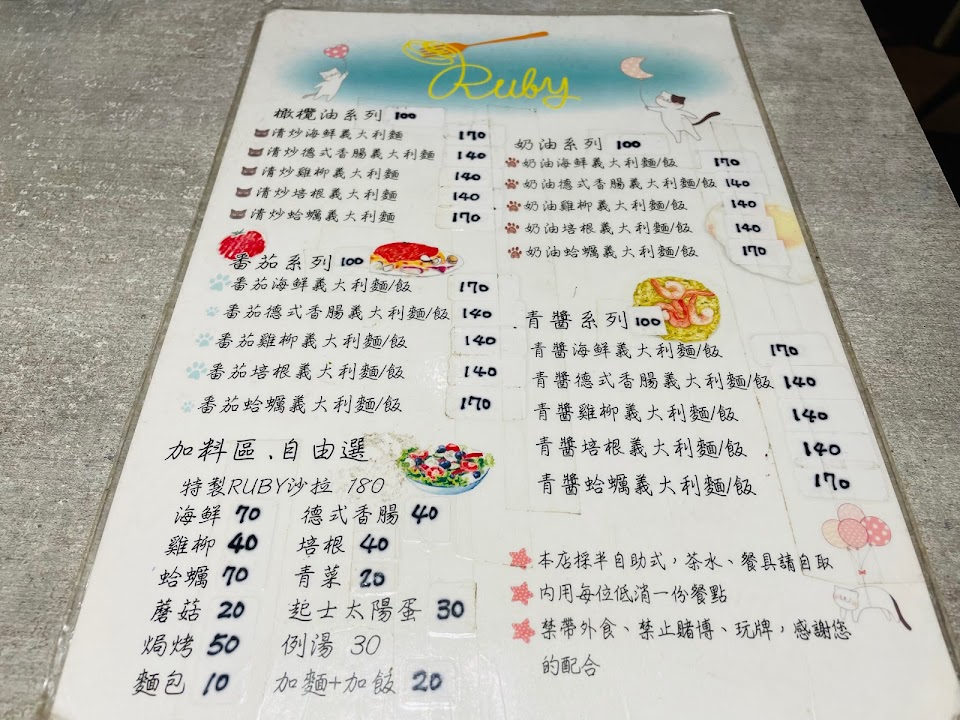 Ruby
橄欖油系列 100
清炒海鮮義大利麵 170
清炒德式香腸義大利麵 140
清炒雞柳義大利麵 140
清炒培根義大利麵 140
清炒蛤蠣義大利麵 170
番茄系列 100
番茄海鮮義大利麵/飯 170
番茄德式香腸義大利麵/飯 140
番茄雞柳義大利麵/飯 140
番茄培根義大利麵/飯 140
番茄蛤蠣義大利麵/飯 170
奶油系列 100
奶油海鮮義大利麵/飯 170
奶油德式香腸義大利麵/飯 140
奶油雞柳義大利麵/飯 140
奶油培根義大利麵/飯 140
奶油蛤蠣義大利麵/飯 170
青醬系列 100
青醬海鮮義大利麵/飯 170
青醬德式香腸義大利麵/飯 140
青醬雞柳義大利麵/飯 140
青醬培根義大利麵/飯 140
青醬蛤蠣義大利麵/飯 170
加料區、自由選
特製RUBY沙拉 180
海鮮 70 德式香腸 40
雞柳 40 培根 40
蛤蠣 70 青菜 20
蘑菇 20 起士太陽蛋 30
焗烤 50 例湯 30
麵包 10 加麵+加飯 20
本店採半自助式，茶水、餐具請自取
內用每位低消一份餐點
禁帶外食、禁止賭博、玩牌，感謝您
的配合